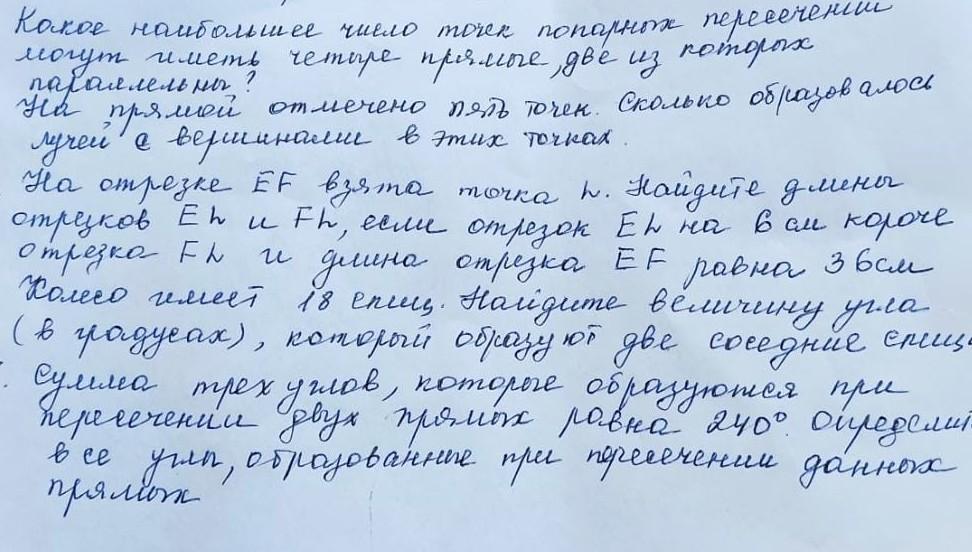 Какое наибольшее число точек попарных пересечений
могут иметь четыре прямые, две из которых
параллельны?
На прямой отмечено пять точек. Сколько образовалось
лучей с вершинами в этих точках.
На отрезке EF взята точка L. Найдите длины
отрезков EL и FL, если отрезок EL на 6 см короче
отрезка FL и длина отрезка EF равна 36см
Колесо имеет 18 спиц. Найдите величину угла
(в градусах), который образуют две соседние спиц
Сумма трех углов, которые образуются при
пересечении двух прямых равна 240°. Определит
все углы, образованные при пересечении данных
прямых